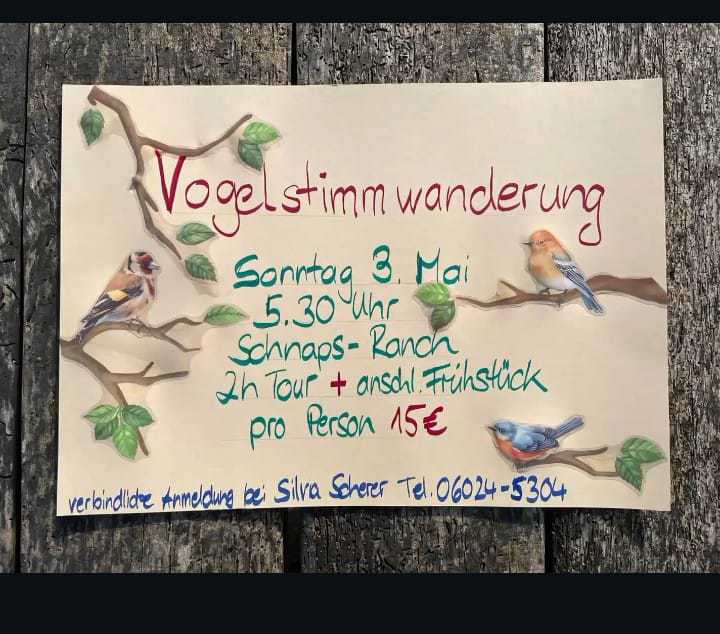 Vogelstimmwanderung
Sonntag 3. Mai
5.30 Uhr
Schnaps-Ranch
2h Tour + anschl. Frühstück
pro Person 15€
verbindliche Anmeldung bei Silva Scherer Tel. 06024-5304